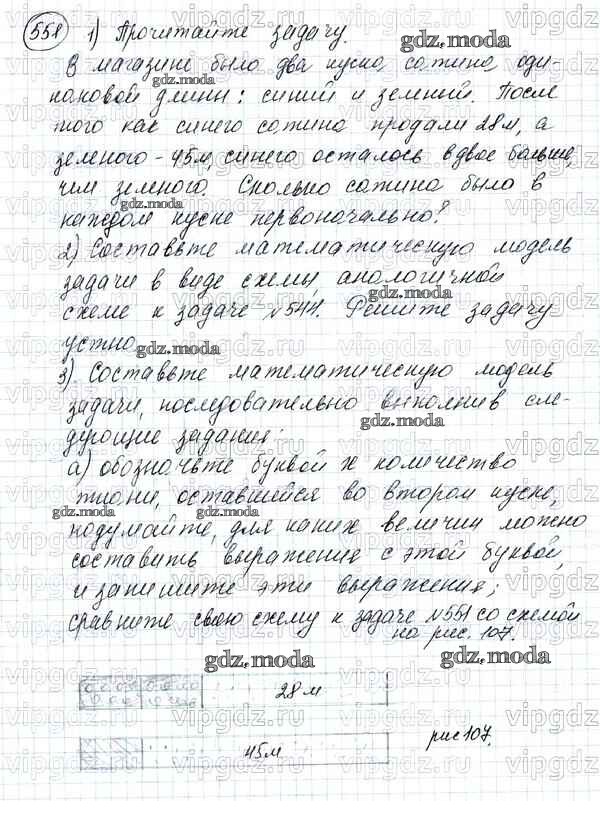 551 1) Прочитайте задачу.
gdz.moda
В магазине было два куска сатина оди-
наковой длины: синий и зеленый. После
того как синего сатина продали 28м, а
зеленого - 45м, синего осталось вдвое больше,
чем зеленого. Сколько сатина было в
каждом куске первоначально?
2) Составьте математическую модель
задачи в виде схемы, аналогичной
gdz.moda
схеме к задаче №544. Решите задачу
устно.
gdz.moda
3). Составьте математическую модель
задачи, последовательно выполнив сле-
gdz.moda
дующие задания:
а) обозначьте буквой х количество
ткани, оставшейся во втором куске,
gdz.moda
gdz.moda
подумайте, для каких величин можно
составить выражения с этой буквой,
и запишите эти выражения;
сравните свою схему к задаче №551 со схемой
на рис. 107.
gdz.moda
gdz.moda
28м
45м
рис107.
gdz.moda
gdz.moda
vipgdz.ru